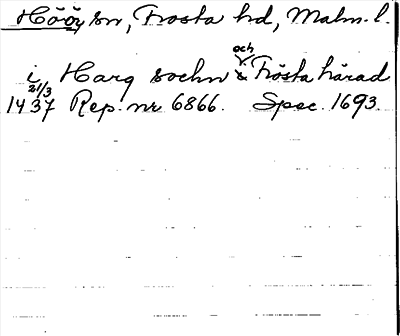 Höör sn, Frosta hd, Malm. l.
i Harg sochn och Frösta härad
1437 21/3 Rep. nr 6866. Spec. 1693.